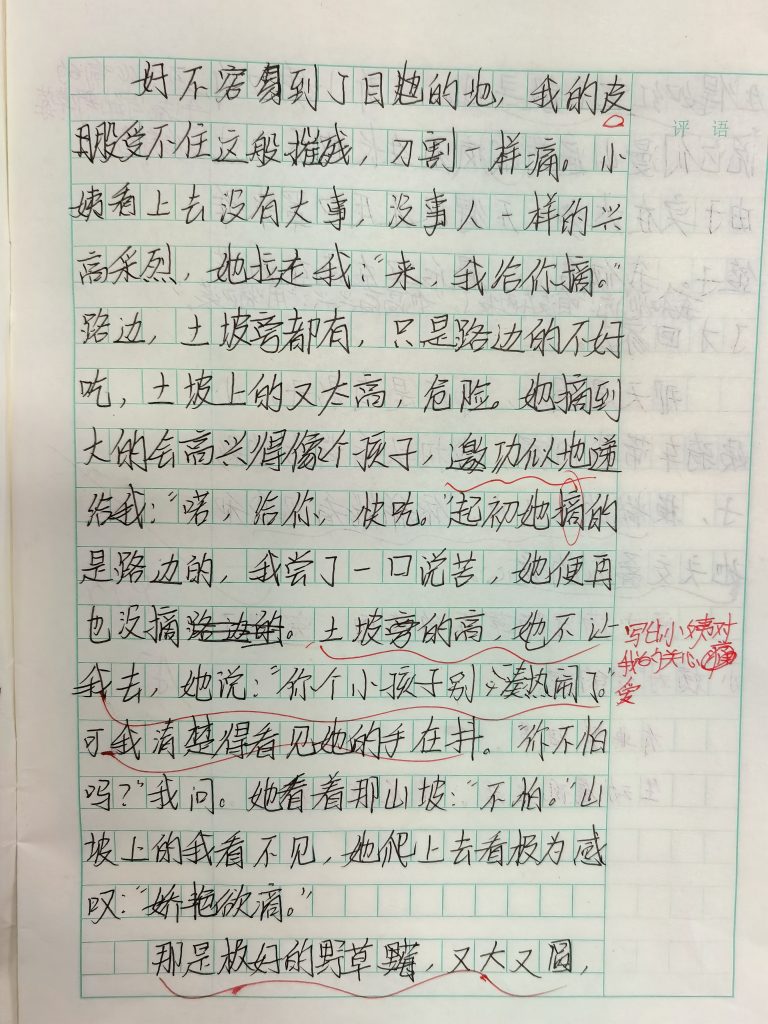 好不容易到了目的地，我的皮
股受不住这般摧残，刀割一样痛。小
姨看上去没有大事，没事人一样的兴
高采烈，她拉走我："来，我给你摘。"
路边，土坡旁都有，只是路边的不好
吃，土坡上的又太高，危险。她摘到
大的会高兴得像个孩子，邀功似地递
给我："喏，给你，快吃。"起初她摘的
是路边的，我尝了一口说苦，她便再
也没摘路边的。土坡旁的高，她不让
我去，她说："你个小孩子别凑热闹了。"
可我清楚得看见她的手在抖。"你不怕
吗？"我问。她看着那山坡："不怕。"山
坡上的我看不见，她爬上去看极为感
叹："娇艳欲滴。"
那是极好的野草莓，又大又圆，
评 语
写出小姨对
我的关心
爱